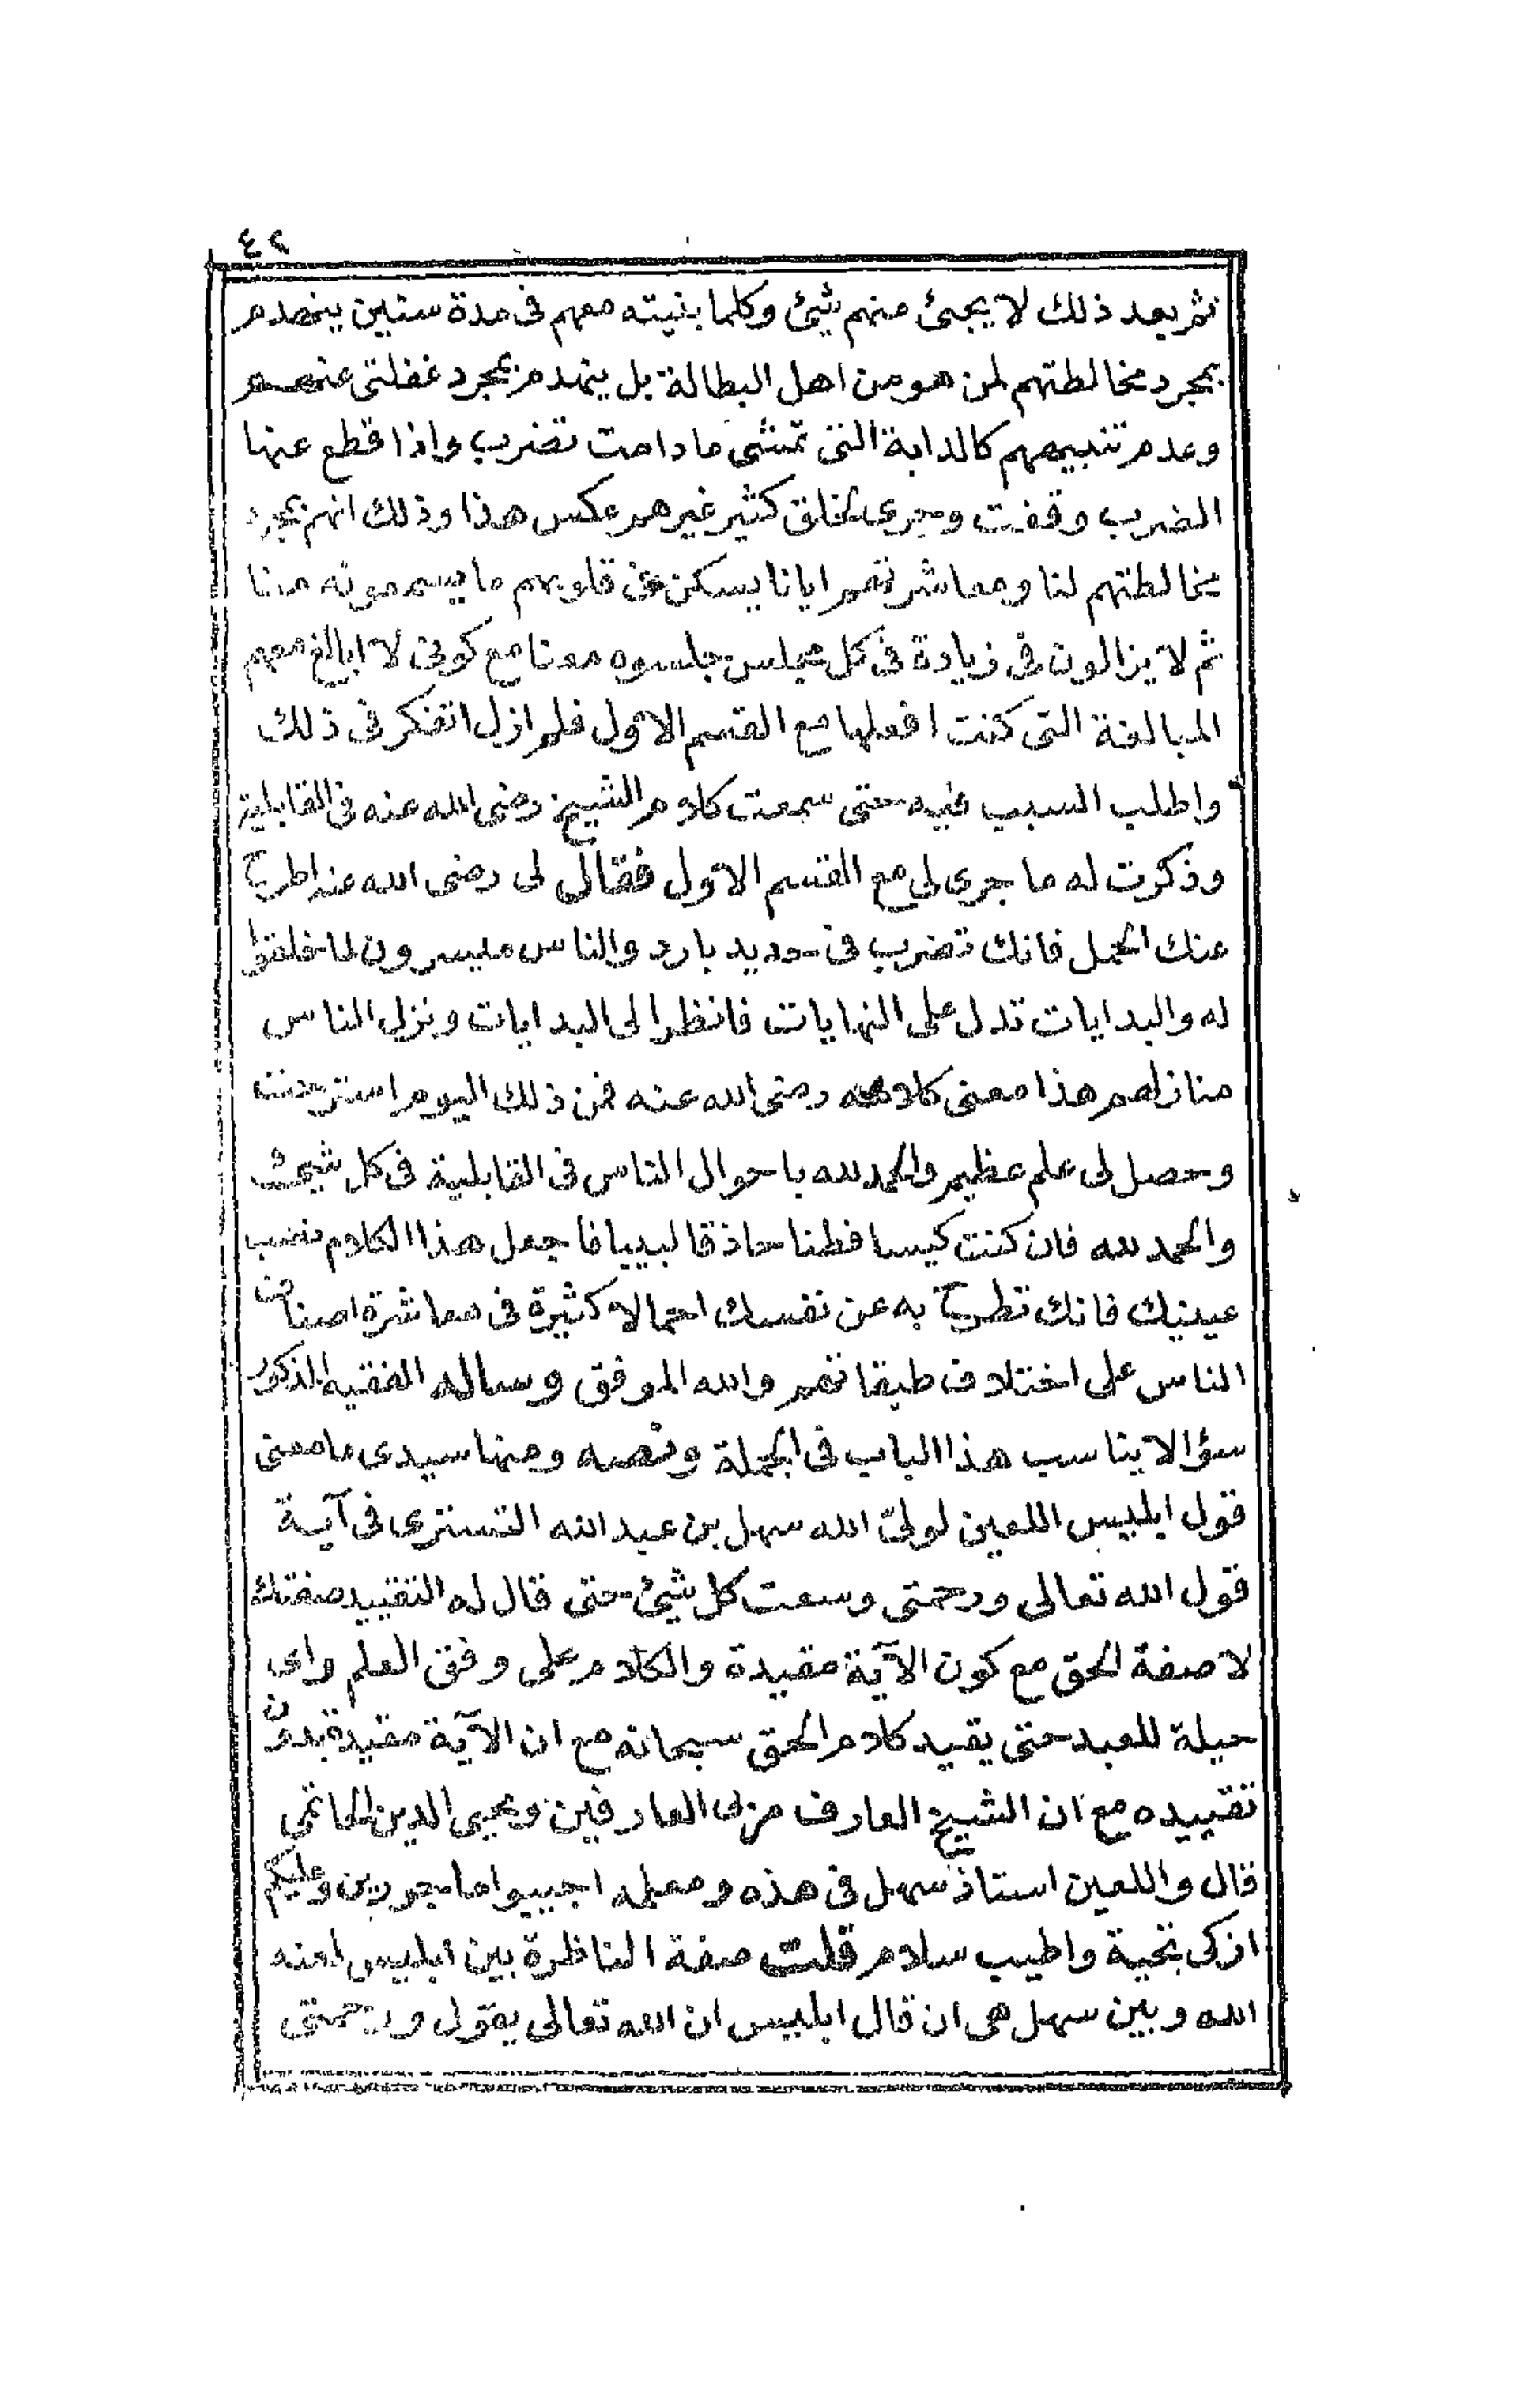 ٤٢
ثم بعد ذلك لا يجئ منهم شئ وكلما بنيته معهم فى مدة سنين ينهدم
بمجرد مخالطتهم لمن هو من اهل البطالة بل ينهدم بمجرد غفلتى عنهم
وعدم تنبيههم كالدابة التى تمشى ما دامت تضرب واذا قطع عنها
الضرب وقفت وجرى لخلق كثير غيرهم عكس هذا وذلك انهم بمجرد
مخالطتهم لنا ومعاشرتهم ايانا يسكن فى قلوبهم ما يسمعونه منا
ثم لا يزالون فى زيادة فى كل مجلس جلسوه معنا مع كونى لا ابالغ معهم
المبالغة التى كنت افعلها مع القسم الاول فلم ازل اتفكر فى ذلك
واطلب السبب فيه حتى سمعت كلام الشيخ رضى الله عنه فى القابلية
وذكرت له ما جرى لى مع القسم الاول فقال لى رضى الله عنه اطرح
عنك الحمل فانك تضرب فى حديد بارد والناس ميسرون لما خلقوا
له والبدايات تدل على النهايات فانظر الى البدايات ونزل الناس
منازلهم هذا معنى كلامه رضى الله عنه فمن ذلك اليوم استرحت
وحصل لى علم عظيم والحمد لله باحوال الناس فى القابلية فى كل شئ
والحمد لله فان كنت كيسا فطنا حاذقا لبيبا فاجعل هذا الكلام نصب
عينيك فانك تطرح به عن نفسك احمالا كثيرة فى معاشرة اصناف
الناس على اختلاف طبقاتهم والله الموفق وساله الفقيه المذكور
سؤالا يناسب هذا الباب فى الجملة ونصه ومنها سيدى ما معنى
قول ابليس اللعين لولى الله سهل بن عبد الله التسترى فى آية
قول الله تعالى ورحمتى وسعت كل شئ حتى قال له التقييد صفتك
لا صفة الحق مع كون الآية مقيدة والكلام على وفق العلم واى
حيلة للعبد حتى يقيد كلام الحق سبحانه مع ان الآية مقيدة بدون
تقييده مع ان الشيخ العارف مربى العارفين ومحيى الدين الحاتمى
قال واللعين استاذ سهل فى هذه ومعلمه اجيبوا ماجورين وعليكم
ازكى تحية واطيب سلام قلت صفة المناظرة بين ابليس لعنه
الله وبين سهل هى ان قال ابليس ان الله تعالى يقول ورحمتى